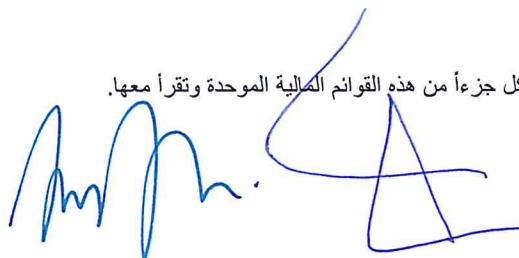 كل جزءاً من هذه القوائم المالية الموحدة وتقرأ معها.